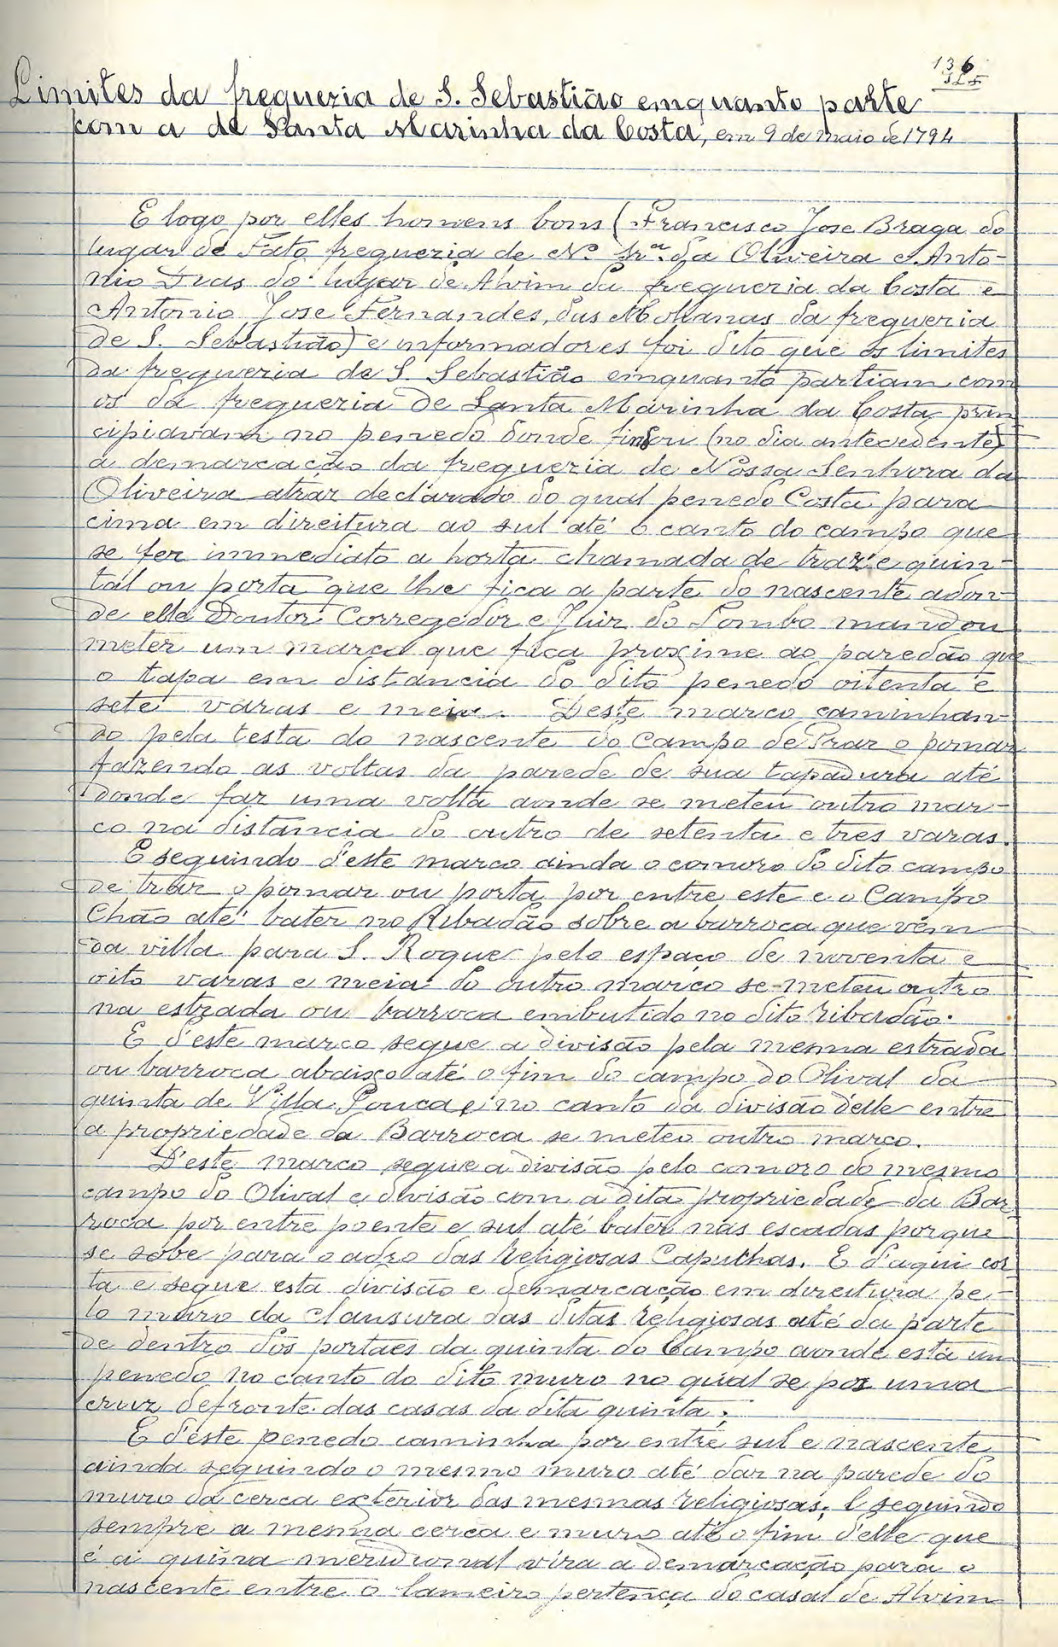 136
Limites da fregueria de S. Sebastião emquanto parte
com a de Santa Marinha da Costa, em 9 de maio de 1794
E logo por elles homens bons (Francisco Jose Braga do
lugar de Fato fregueria de Nª Srª da Oliveira e Anto-
nio Dias do lugar de Alvim da fregueria da Costa e
Antonio Jose Fernandes, das Molianas da fregueria
de S. Sebastião) e informadores foi dito que os limites
da fregueria de S. Sebastião emquanto partiam com
os da fregueria de Santa Marinha da Costa prin
cipiavam no penedo donde findou (no dia antecedente)
a demarcação da fregueria de Nossa Senhora da
Oliveira atraz declarado do qual penedo Costa para
cima em direitura ao sul até o canto do campo que
se fez immediato a horta chamada de traz e quin-
tal ou porta que lhe fica a parte do nascente adon-
de elle Doutor Corregedor e Juiz do Tombo mandou
meter um marco que fica proximo ao paredão que
o tapa em distancia do dito penedo oitenta e
sete varas e meia. Deste marco caminhan-
do pela testa do nascente do Campo de Traz o pomar
fazendo as voltas da parede de sua tapadura até
donde faz uma volta aonde se meteu outro mar-
co na distancia do outro de setenta e tres varas.
E seguindo d'este marco ainda o comoro do dito campo
de traz o pomar ou porta, por entre este e o Campo
Chão até bater no Ribadão sobre a barroca que vem
da villa para S. Roque pelo espaço de noventa e
oito varas e meia do outro marco se meteu outro
na estrada ou barroca embutido no dito ribadão.
E d'este marco segue a divisão pela mesma estrada
ou barroca abaixo até o fim do campo do Olival da
quinta de Villa Pouca, e no canto da divisão d'elle entre
a propriedade da Barroca se meteo outro marco.
D'este marco segue a divisão pelo comoro do mesmo
campo do Olival e divisão com a dita propriedade da Bar
roca por entre poente e sul até bater nas escadas porque
se sobe para o adro das religiosas Capuchas. E d'aqui cos
ta e segue esta divisão e demarcação em direitura pe-
lo muro da clausura das ditas religiosas até da parte
de dentro dos portaes da quinta do Campo aonde está um
penedo no canto do dito muro no qual se poz uma
cruz defronte das casas da dita quinta.
E d'este penedo caminha por entre sul e nascente
ainda seguindo o mesmo muro até dar na parede do
muro da cerca exterior das mesmas religiosas; E seguindo
sempre a mesma cerca e muro até o fim d'elle que
é a quina meridional vira a demarcação para o
nascente entre o lameiro pertença do casal de Alvim